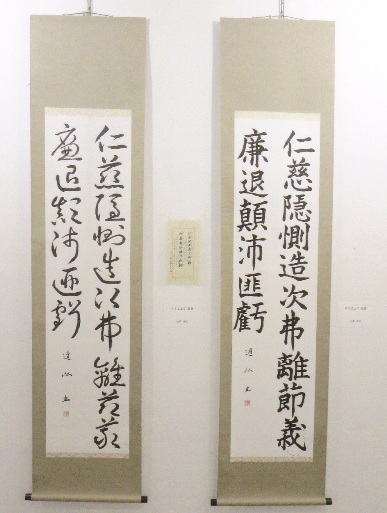 仁慈隠惻造次弗離節義
廉退顛沛匪虧
仁慈隠惻造次弗離節義
廉退顛沛匪虧